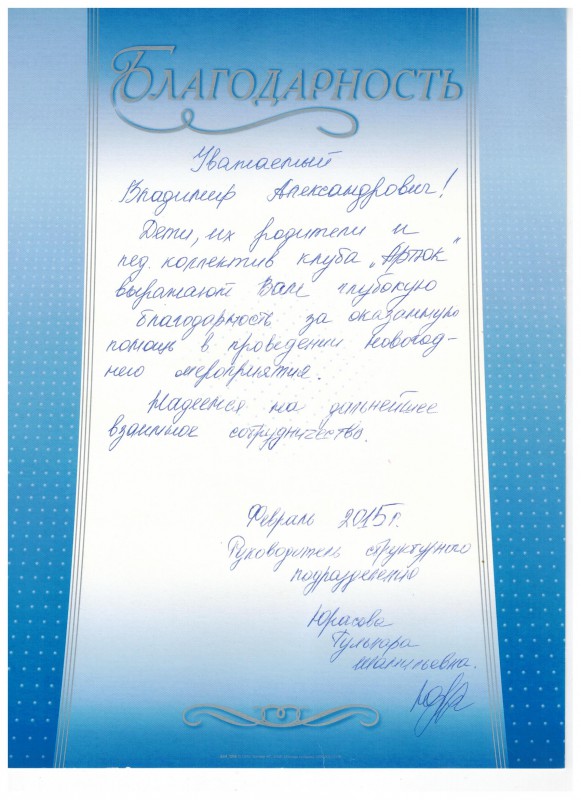 Благодарность
Уважаемый
Владимир Александрович!
Дети, их родители и
пед. коллектив клуба „Артюк"
выражают Вам глубокую
благодарность за оказанную
помощь в проведении новогод-
него мероприятия.
Надеемся на дальнейшее
взаимное сотрудничество.
Февраль 2015г.
Руководитель структурного
подразделения
Юрасова
Гульнара
Шамильевна.